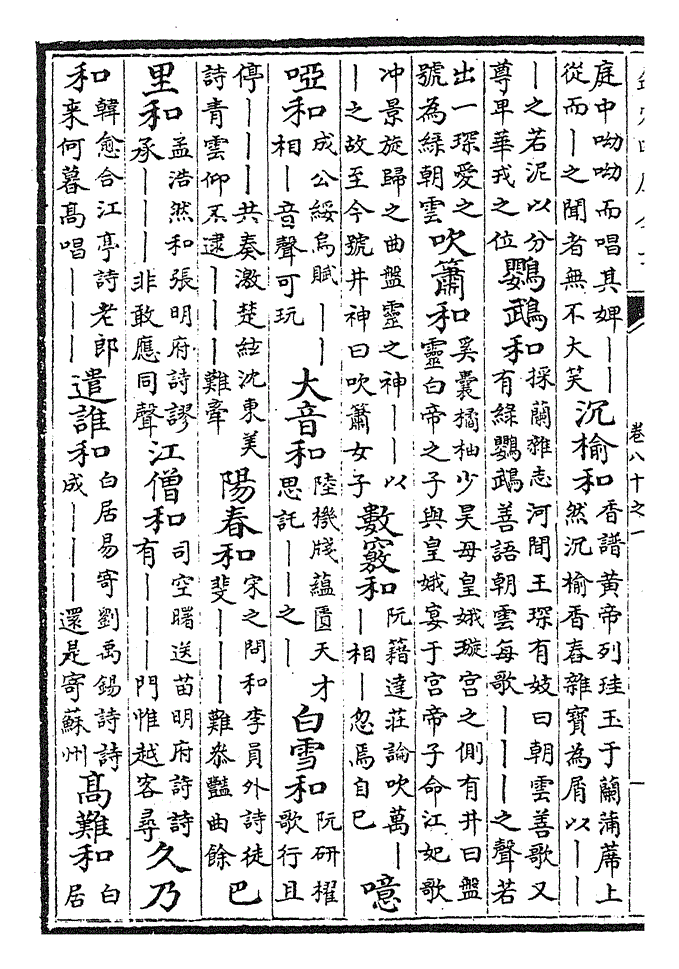 卷八十之一
一
庭中呦呦而唱其婢｜｜
從而｜之聞者無不大笑
沉榆和
香譜黄帝列珪玉于蘭蒲蓆上
然沉榆香舂雜寶為屑以｜｜
｜之若泥以分
尊卑華戎之位
鸚鵡和
採蘭雜志河間王琛有妓曰朝雲善歌又
有緑鸚鵡善語朝雲每歌｜｜｜之聲若
出一琛愛之
號為緑朝雲
吹簫和
奚囊橘柚少昊母皇娥璇宫之側有井曰盤
靈白帝之子與皇娥宴于宫帝子命江妃歌
冲景旋歸之曲盤靈之神｜｜以
｜之故至今號井神曰吹簫女子
數竅和
阮籍達莊論吹萬｜
｜相｜忽焉自已
噫
啞和
成公綏烏賦｜｜
相｜音聲可玩
大音和
陸機牋蘊匱天才
思託｜｜之｜
白雪和
阮研櫂
歌行且
停｜｜｜共奏激楚絃沈東美
詩青雲仰不逮｜｜｜難牽
陽春和
宋之問和李員外詩徒
斐｜｜｜難叅豔曲餘
巴
里和
孟浩然和張明府詩謬
承｜｜｜非敢應同聲
江僧和
司空曙送苗明府詩詩
有｜｜｜門惟越客尋
久乃
和
韓愈合江亭詩老郎
來何暮高唱｜｜｜
遣誰和
白居易寄劉禹錫詩詩
成｜｜｜還是寄蘇州
高難和
白
居